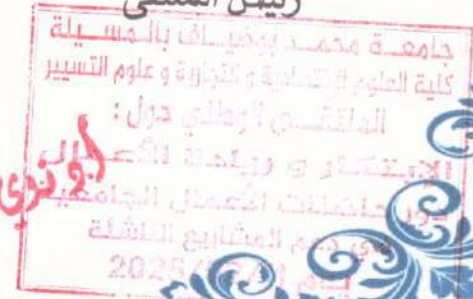 رئيس الملتقى
جامعة محمد بوضياف بالمسيلة
كلية العلوم الاقتصادية و التجارية و علوم التسيير
الملتقى الوطني حول :
الابتكار و ريادة الأعمال
دور حاضنات الأعمال الجامعية
في دعم المشاريع الناشئة